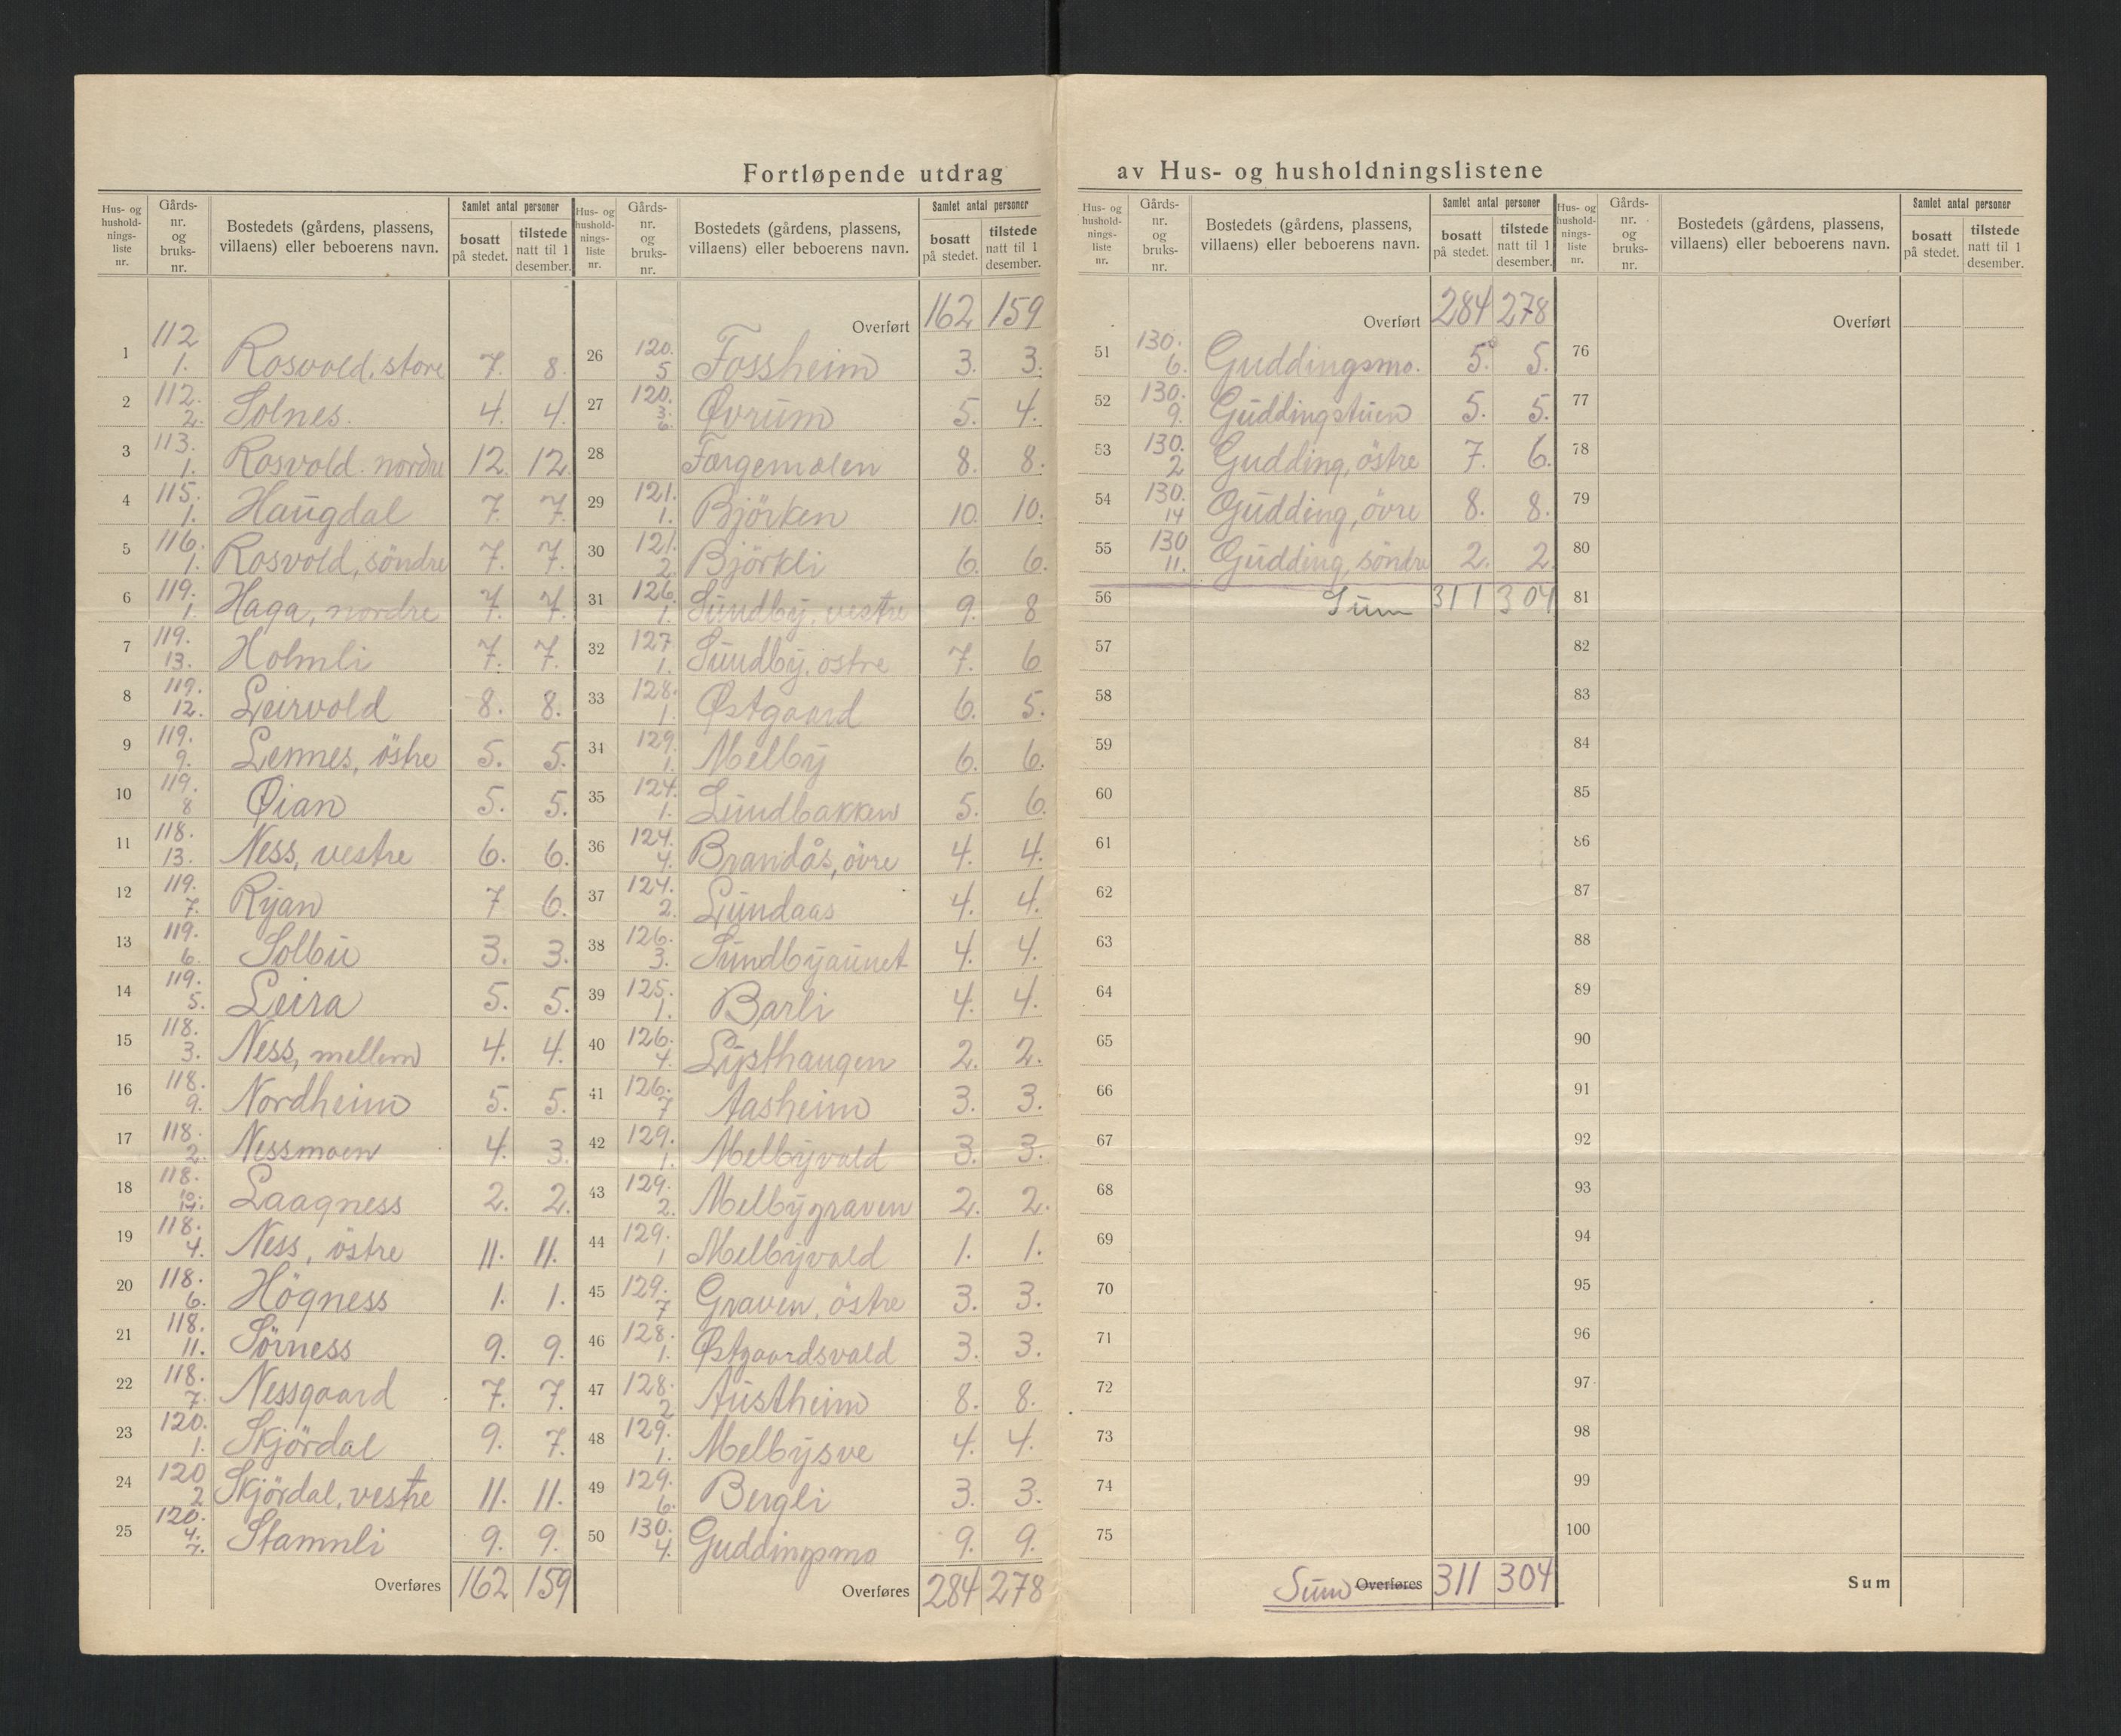 Fortløpende utdrag av Hus- og husholdningslistene
Hus- og hushold-nings-liste nr. | Gårds-nr. og bruks-nr. | Bostedets (gårdens, plassens, villaens) eller beboerens navn. | Samlet antal personer | bosatt på stedet. | tilstede natt til 1 desember.
1 | 112 1. | Rosvold, store | 7. | 8.
2 | 112. 2. | Solnes. | 4. | 4.
3 | 113. 1. | Rosvold nordre | 12. | 12.
4 | 115. 1. | Haugdal | 7. | 7.
5 | 116. 1. | Rosvold, söndre | 7. | 7.
6 | 119. 1. | Haga, nordre | 7. | 7.
7 | 119. 13. | Holmli | 7. | 7.
8 | 119. 12. | Leirvold | 8. | 8.
9 | 119. 9. | Lennes, östre | 5. | 5.
10 | 119. 8 | Øian | 5. | 5.
11 | 118. 13. | Ness, vestre | 6. | 6.
12 | 119. 7. | Ryan | 7 | 6.
13 | 119. 6. | Solbu | 3. | 3.
14 | 119. 5. | Leira | 5. | 5.
15 | 118. 3. | Ness, mellem | 4. | 4.
16 | 118. 9. | Nordheim | 5. | 5.
17 | 118. 2. | Nessmoen | 4. | 3.
18 | 118. 10. 14. | Laagness | 2. | 2.
19 | 118. 4. | Ness, östre | 11. | 11.
20 | 118. 6. | Högness | 1. | 1.
21 | 118. 11. | Sörness | 9. | 9.
22 | 118. 7. | Nessgaard | 7. | 7.
23 | 120. 1. | Skjördal | 9. | 7.
24 | 120 2 | Skjördal, vestre | 11. | 11.
25 | 120. 4. 7. | Stamnli | 9. | 9.
Overføres | 162 | 159
Hus- og hushold-nings-liste nr. | Gårds-nr. og bruks-nr. | Bostedets (gårdens, plassens, villaens) eller beboerens navn. | Samlet antal personer | bosatt på stedet. | tilstede natt til 1 desember.
Overført | 162 | 159
26 | 120. 5 | Fossheim | 3. | 3.
27 | 120. 3. 6. | Øvrum | 5. | 4.
28 | Færgemoen | 8. | 8.
29 | 121. 1. | Björken | 10. | 10.
30 | 121. 2. | Björkli | 6. | 6.
31 | 126. 1. | Sundby, vestre | 9. | 8
32 | 127 1. | Sundby, östre | 7. | 6
33 | 128. 1. | Østgaard | 6. | 5.
34 | 129. 1. | Melby | 6. | 6.
35 | 124. 1. | Lundbakken | 5. | 6.
36 | 124. 4. | Brandås, övre | 4. | 4.
37 | 124. 2. | Lundaas | 4. | 4.
38 | 126. 3. | Sundbyaunet | 4. | 4.
39 | 125. 1. | Barli | 4. | 4.
40 | 126. 4. | Lysthaugen | 2. | 2.
41 | 126. 7 | Aasheim | 3. | 3.
42 | 129. 1. | Melbyvald | 3. | 3.
43 | 129. 2. | Melbygraven | 2. | 2.
44 | 129. 1 | Melbyvald | 1. | 1.
45 | 129. 7 | Graven, östre | 3. | 3.
46 | 128. 1. | Østgaardsvald | 3. | 3.
47 | 128. 2 | Austheim | 8. | 8.
48 | 129. 1. | Melbysve | 4. | 4.
49 | 129. 6. | Bergli | 3. | 3.
50 | 130. 4. | Guddingsmo | 9. | 9.
Overføres | 284 | 278
Hus- og hushold-nings-liste nr. | Gårds-nr. og bruks-nr. | Bostedets (gårdens, plassens, villaens) eller beboerens navn. | Samlet antal personer | bosatt på stedet. | tilstede natt til 1 desember.
Overført | 284 | 278
51 | 130. 6. | Guddingsmo. | 5. | 5.
52 | 130. 9. | Guddingstuen | 5. | 5.
53 | 130. 2 | Gudding, östre | 7. | 6.
54 | 130. 14 | Gudding, övre | 8. | 8.
55 | 130 11. | Gudding, söndre | 2. | 2
56 | Sum | 311 | 304
57
58
59
60
61
62
63
64
65
66
67
68
69
70
71
72
73
74
75
Sum Overføres | 311 | 304
Hus- og hushold-nings-liste nr. | Gårds-nr. og bruks-nr. | Bostedets (gårdens, plassens, villaens) eller beboerens navn. | Samlet antal personer | bosatt på stedet. | tilstede natt til 1 desember.
Overført
76
77
78
79
80
81
82
83
84
85
86
87
88
89
90
91
92
93
94
95
96
97
98
99
100
Sum